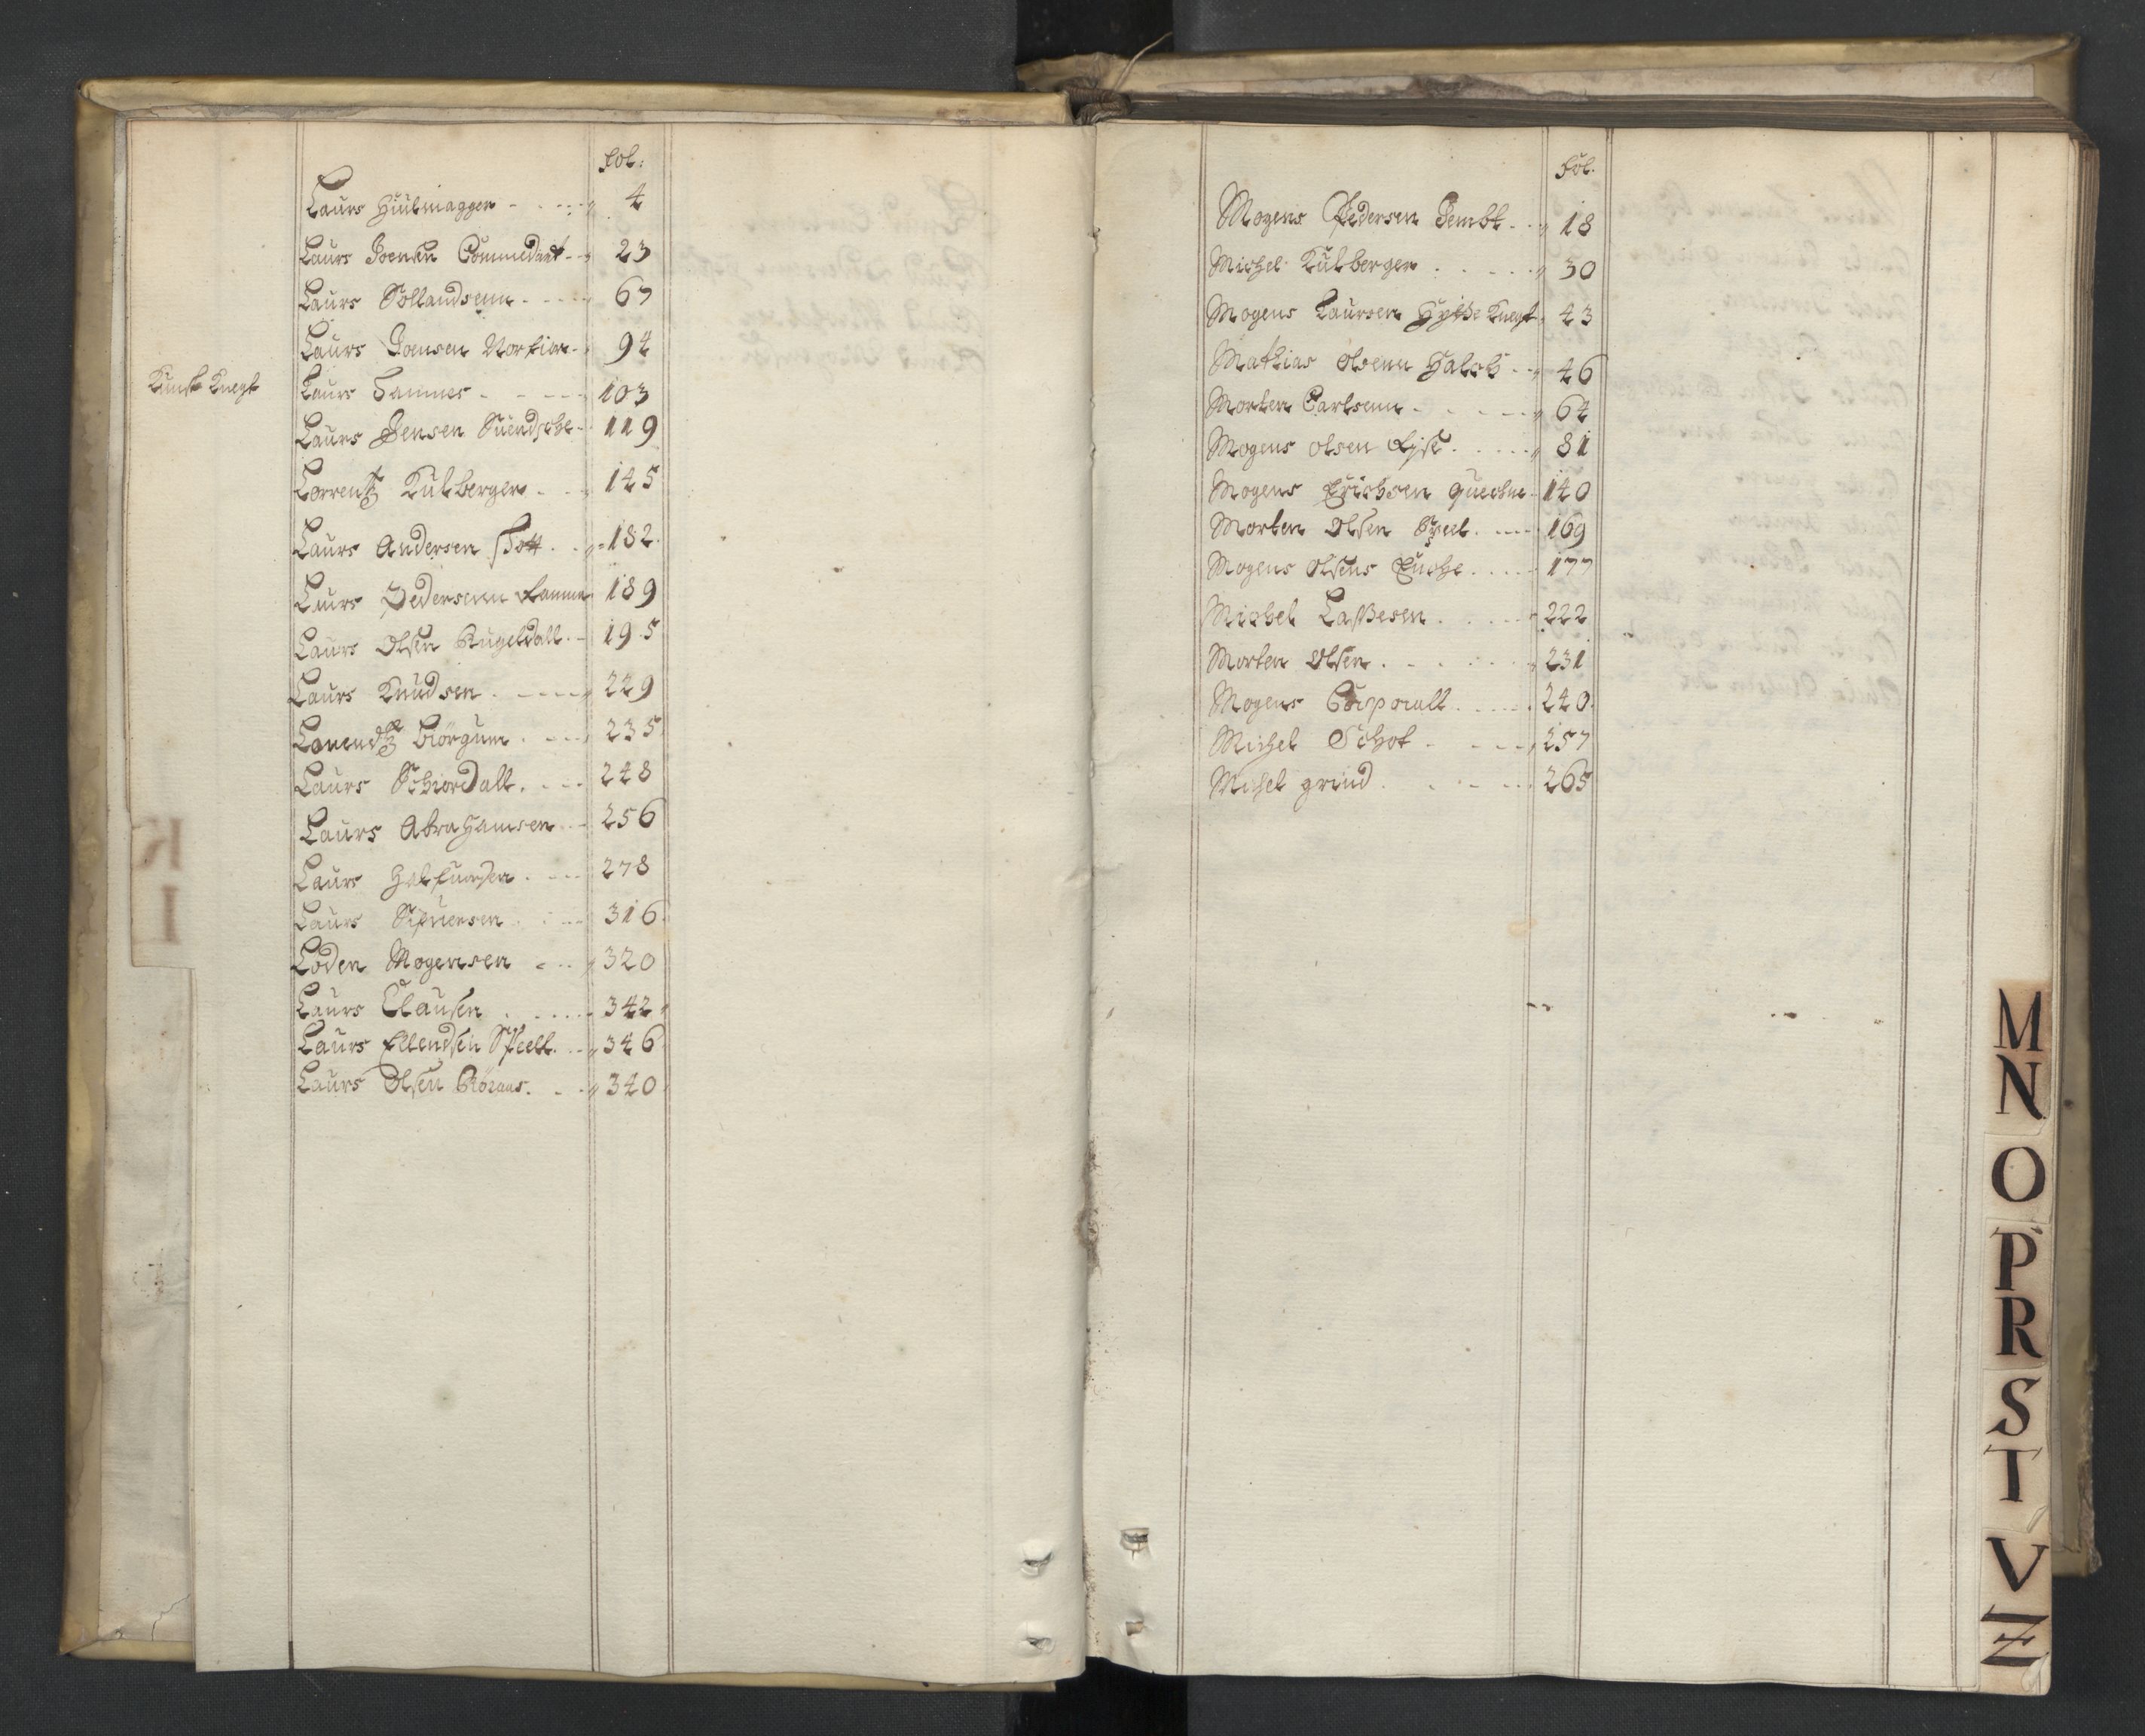 fol:
Laurs Hiulmagger 4
Laurs Joensen Commedant 23
Laurs Sollandsenn 67
Laurs Joensen 94
Kunst Knegt Laurs Hannes 103
Laurs Jensen 119
Lorrentz Kulberger 145
Laurs Andersen Skott 182
Laurs Pedersenn Lamme 189
Laurs Olsen Kugeldall 195
Laurs Knudsen 229
235
Laurs Schiordall 248
Laurs Abrahamsen 256
Laurs Halfuorsen 278
Laurs Sifuersen 316
Loden Mogensen 320
Laurs Clausen 342
Laurs Ellendsen Speell 346
Laurs Olsen Röraas 340
K
L
fol.
Mogens Pedersen Jembt 18
Michel Kulberger 30
Mogens Laursen Hytte Knegt 43
Mathias Olsenn Halch 46
Morten Carlsenn 64
Mogens Olsen 81
Mogens Erichsen Querne 140
Morten Olsen Speel 169
Mogens Olsens Enche 177
Michel Laßesen 222
Morten Olsen 231
Mogens Corporall 240
Michel Schot 257
Michel grind 265
M
N
O
P
R
S
T
V
Z